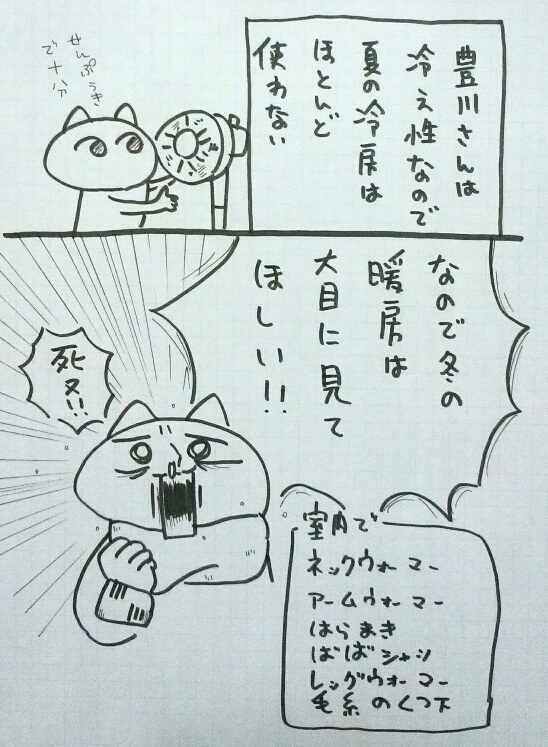 豊川さんは
冷え性なので
夏の冷房は
ほとんど
使わない
せんぷうき
で十分
なので冬の
暖房は
大目に見て
ほしい!!
死ヌ!!
室内で
ネックウォーマー
アームウォーマー
はらまき
ばばシャツ
レッグウォーマー
毛糸のくつ下